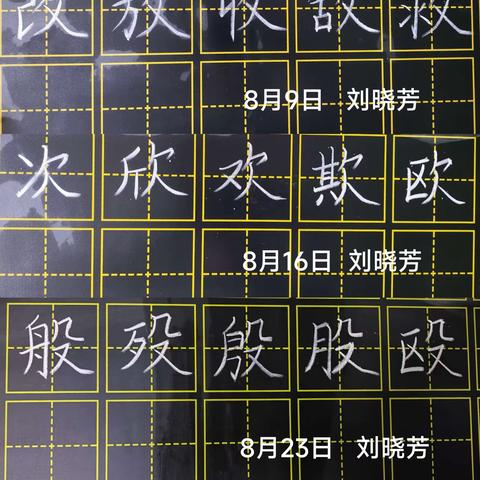 改 放 收 敌 救
8月9日 刘晓芳
次 欣 欢 欺 欧
8月16日 刘晓芳
般 殁 殷 股 殴
8月23日 刘晓芳